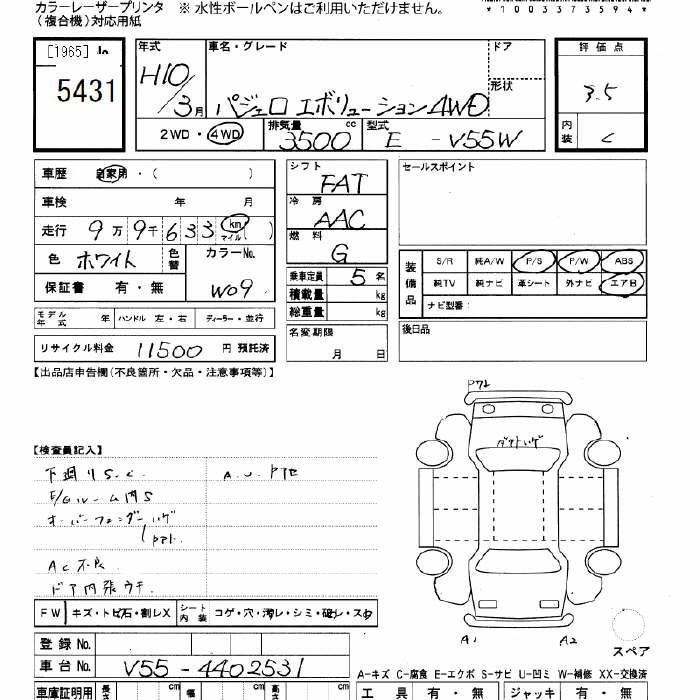 カラーレーザープリンタ ※ 水性ボールペンはご利用いただけません。
(複合機)対応用紙
*1003373594*
[1965]
5431
年式 車名・グレード ドア 評価点
H10/3月 パジェロ エボリューション 4WD 形状 3.5
2WD・4WD 排気量 3500 cc 型式 E - V55W 内装 C
車歴 自家用・( )
シフト FAT
セールスポイント
車検 年 月
冷房 AAC
走行 9万9千633 km マイル ( )
燃料 G
色 ホワイト 色替 カラーNo. W09
装備品 S/R 純A/W P/S P/W ABS
乗車定員 5名
純TV 純ナビ 革シート 外ナビ エアB
保証書 有・無
積載量 kg
ナビ型番:
総重量 kg
モデル年式 年 ハンドル 左・右 ディーラー・並行
名変期限 月 日
後日品
リサイクル料金 11500 円 預託済
【出品店申告欄(不良箇所・欠品・注意事項等)】
【検査員記入】
下廻りS.C.
A.U.Pた
E/Gルーム内S
オーバーフェンダーハゲ
AC不良
ドア内張ウキ
A1 A2
スペア
FW キズ・トビ石・割レX シート内装 コゲ・穴・汚レ・シミ・破レ・スレ
登録No.
車台No. V55-4402531
A-キズ C-腐食 E-エクボ S-サビ U-凹ミ W-補修 XX-交換済
車庫証明用 長さ cm 幅 cm 高さ cm 工具 有・無 ジャッキ 有・無